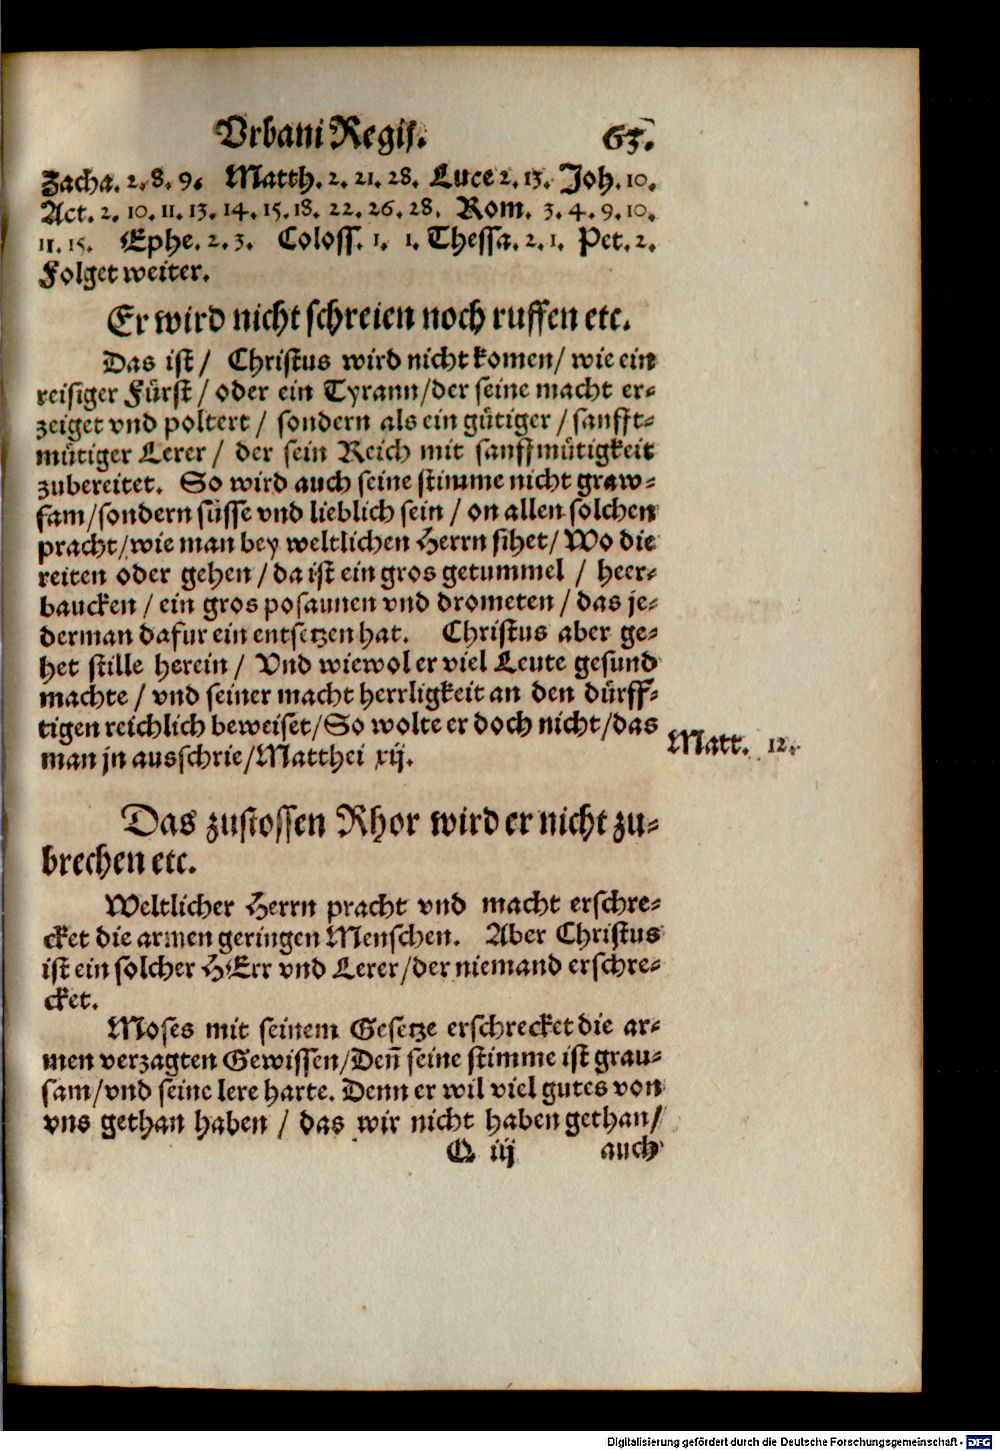 Vrbani Regij. 63.
Zacha. 2. 8. 9. Matth. 2. 21. 28. Luce 2. 13. Joh. 10.
Act. 2. 10. 11. 13. 14. 15. 18. 22. 26. 28. Rom. 3. 4. 9. 10.
11. 15. Ephe. 2. 3. Coloss. 1. 1. Thessa. 2. 1. Pet. 2.
Folget weiter.
Er wird nicht schreien noch ruffen etc.
Das ist / Christus wird nicht komen / wie ein
reisiger Fürst / oder ein Tyrann / der seine macht er-
zeiget vnd poltert / sondern als ein gütiger / sanfft-
mütiger Lerer / der sein Reich mit sanffmütigkeit
zubereitet. So wird auch seine stimme nicht graw-
sam / sondern süsse vnd lieblich sein / on allen solchen
pracht / wie man bey weltlichen Herrn sihet / Wo die
reiten oder gehen / da ist ein gros getummel / heer-
baucken / ein gros posaunen vnd drometen / das je-
derman dafur ein entsetzen hat. Christus aber ge-
het stille herein / Vnd wiewol er viel Leute gesund
machte / vnd seiner macht herrligkeit an den dürff-
tigen reichlich beweiset / So wolte er doch nicht / das
man jn ausschrie / Matthei xij.
Matt. 12.
Das zustossen Rhor wird er nicht zu-
brechen etc.
Weltlicher Herrn pracht vnd macht erschre-
cket die armen geringen Menschen. Aber Christus
ist ein solcher HErr vnd Lerer / der niemand erschre-
cket.
Moses mit seinem Gesetze erschrecket die ar-
men verzagten Gewissen / Deñ seine stimme ist grau-
sam / vnd seine lere harte. Denn er wil viel gutes von
vns gethan haben / das wir nicht haben gethan /
Q iij auch
Digitalisierung gefördert durch die Deutsche Forschungsgemeinschaft - DFG